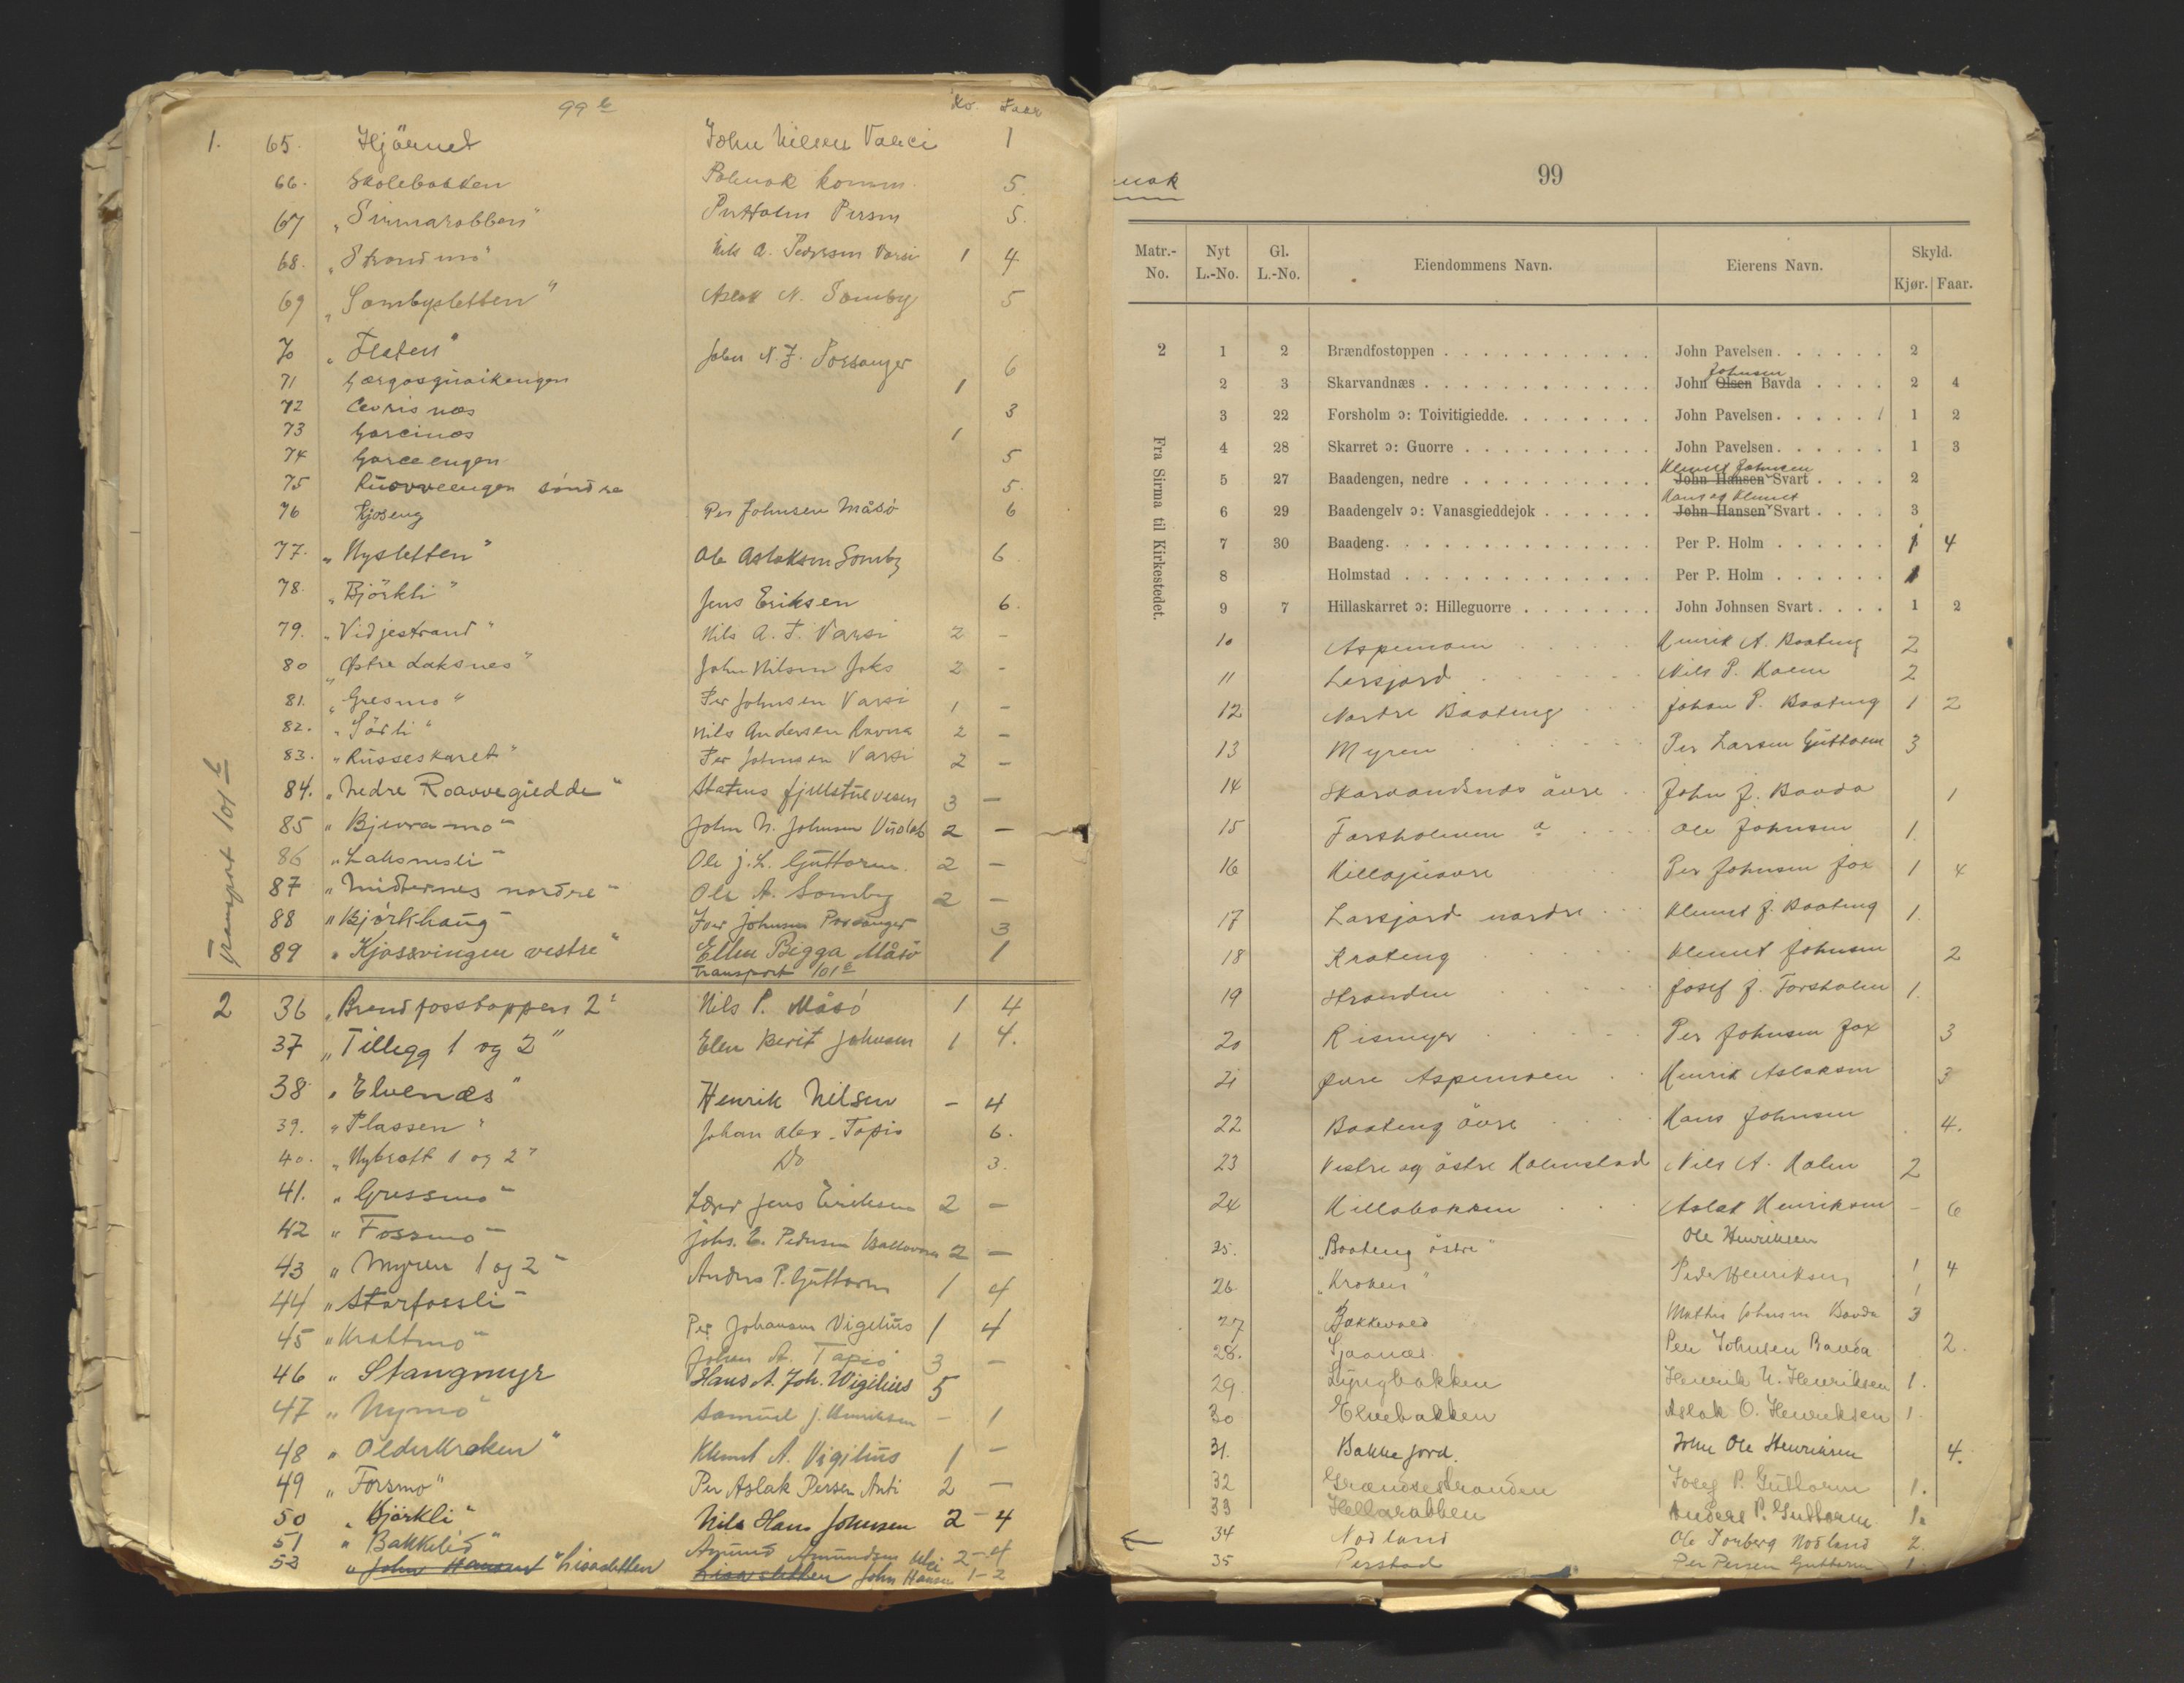 99 b
Ko. Faar
1. 65. Hjörnet John Nilsen Varsi 1
66. Skolebakken Polmak komm. 5.
67 „Sirmarabben" Per Holm Persen 5.
68. „Strandmo" Nils A. Pedersen Varsi 1 4
69 „Sombysletten" Aslak N. Somby 5
70 „Flaten" John N. J. Porsanger 6
71 1
72 3
73 1
74 5
75 søndre 5.
76 Kjoseng Per Johnsen Måsö 6
77. „Nysletten" Ole Aslaksen Somby 6
78. „Björkli" Jens Eriksen 6.
79. „Vidjestrand" Nils A. J. Varsi 2 -
80 „Østre Laksnes" John Nilsen Joks 2 -
81. „Gresmo" Per Johnsen Varsi 1 -
82. „Sörli" Nils Andersen Ravna 2 -
83. „Russeskaret" Per Johnsen Varsi 2 -
84. „Nedre Roavvegiedde" Statens fjellstuevesen 3 -
85 „Bjevramo" John N. Johnsen 2 -
86 „Laksnesli" Ole J. L. Guttorm. 2 -
87 „Midternes nordre" Ole A. Somby 2 -
88 „Björkhaug" Iver Johnsen Porsanger 3
89 „Kjossvingen vestre" Ellen Bigga Måsö 1
Transport 101 b
Transport 101 b
2 36 „Brendfosstoppen 2" Nils P. Måsö 1 4
37 „Tillegg 1 og 2" Elen Berit Johnsen 1 4.
38 „Elvenæs" Henrik Nilsen - 4
39. „Plassen" Johan Alex. Tapio 6.
40. „Nybrott 1 og 2" Do 3.
41. „Gressmo" Lærer Jens Eriksen 2 -
42 „Fossmo" Johs. E. Pedersen 2 -
43 „Myren 1 og 2" Anders P. Guttorm 1 4
44 „Storfossli"
45 „Krattmo" Per Johansen Vigelius 1 4
Johan A. Tapio 3 -
46 „Stangmyr Hans A. Joh. Wigelius 5
47 „Nymo" Samuel J. Henriksen - 1
48 „Olderkroken" Klemet A. Vigelius 1 -
49 „Forsmo" Per Aslak Persen Anti 2 -
50 „Björkli" Nils Hans Johnsen 2 - 4
51 „Bakkelid" Amund Amundsen 2 - 4
53 „John Hansen" Lisasletten Lisasletten John Hansen 1 - 2
mak
99
Matr.-No. Nyt L.-No. Gl. L.-No. Eiendommens Navn. Eierens Navn. Skyld.
Kjør. Faar.
Fra Sirma til Kirkestedet.
2 1 2 Brændfostoppen . . . John Pavelsen . . . 2
Johnsen
2 3 Skarvandnæs . . . John Olsen Bavda . . . 2 4
3 22 Forsholm ɔ: Toivitigiedde. . . . John Pavelsen . . . 1 2
4 28 Skarret ɔ: Guorre . . . John Pavelsen . . . 1 3
Klemet Johnsen
5 27 Baadengen, nedre . . . John Hansen Svart . . . 2
Hans og Klemet
6 29 Baadengelv ɔ: Vanasgieddejok . . . John Hansen Svart . . . 3
7 30 Baadeng . . . Per P. Holm . . . 1 4
8 Holmstad . . . Per P. Holm . . . 1
9 7 Hillaskarret ɔ: Hilleguorre . . . John Johnsen Svart . . . 1 2
10 Aspemoen Henrik A. Baateng 2
11 Larsjord Nils P. Holm 2
12 Nordre Baateng Johan P. Baateng 1 2
13 Myren Per Larsen Guttorm 3
14 Skarvandsnæs övre John J. Bavda 1
15 Forsholmen a Ole Johnsen 1.
16 Hillaguovre Per Johnsen Jox 1 4
17 Larsjord nordre Klemet J. Baateng 1.
18 Krateng Klemet Johnsen 2
19 Stranden Josef J. Forsholm 1.
20 Rismyr Per Johnsen Jox 3
21 Øvre Aspemoen Henrik Aslaksen 3
22 Baateng övre Hans Johnsen 4.
23 Vestre og östre Holmstad Nils A. Holm 2
24 Hillabakken Aslak Henriksen - 6
25. „Baateng östre" Ole Henriksen 1 4
26 „Kroken" Peder Henriksen 1
27 Bakkevold Mathis Johnsen Bavda 3
28. Sjaanes. Per Johnsen Bavda 2.
29. Lyngbakken Henrik N. Henriksen 1.
30 Elvebakken Aslak O. Henriksen 1.
31. Bakkejord. John Ole Henriksen 4.
32 Grændsestranden Josef P. Guttorm 1.
33 Hellarabben Anders P. Guttorm. 1.
34 Nodland Ole Torberg Nodland 2.
35 Perstad Per Persen Guttorm 1.